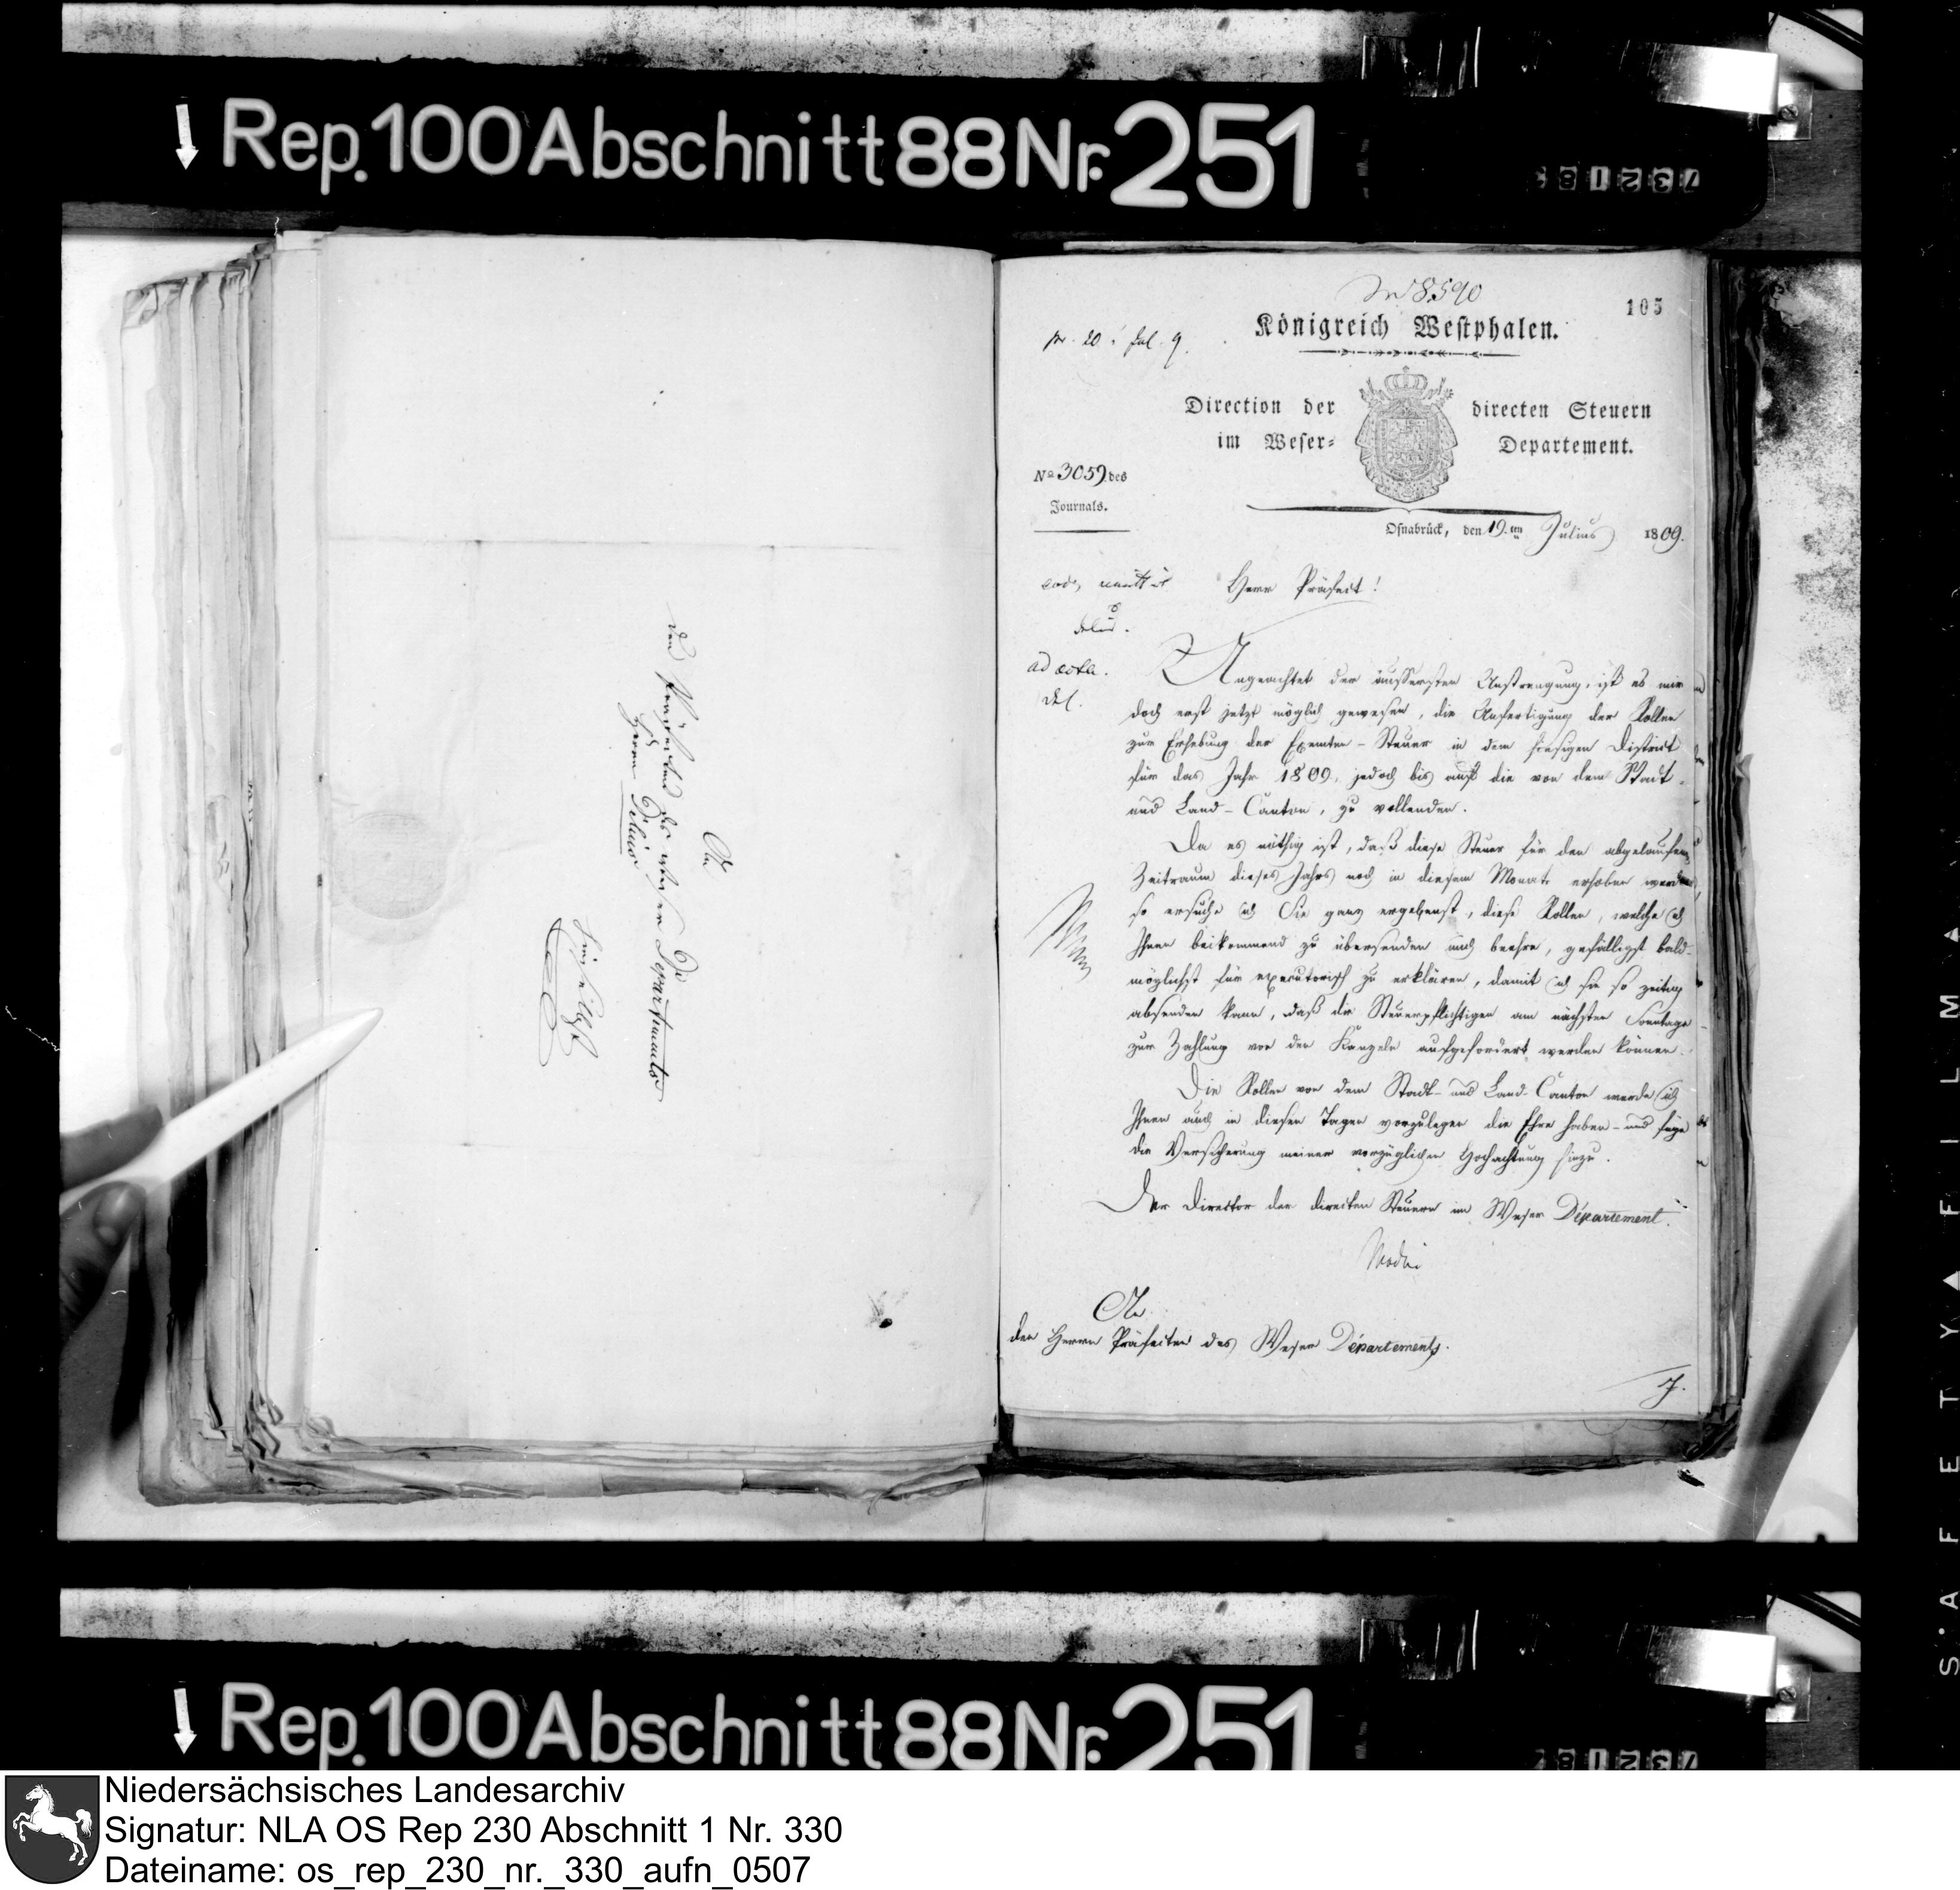 Rep. 100 Abschnitt 88 Nr. 251
An
den Präfecten des Weser Departements
Herrn Delius
Hieselbst
105
No 8590
pr. 20. Jul. 9.
Königreich Westphalen.
Direction der directen Steuern
im Weser- Departement.
No 3059 des
Journals.
Osnabrück, den 19.ten Julius 1809.
Herr Präfect!
eod. remitt
ad acta.
Del.
Ungeachtet der äussersten Anstrengung, ist es mir
doch erst jetzt möglich gewesen, die Anfertigung der Rollen
zur Erhebung der Exemten-Steuer in dem hiesigen District
für das Jahr 1809, jedoch bis auf die von dem Stadt-
und Land-Canton, zu vollenden.
Da es nöthig ist, daß diese Steuer für den abgelaufenen
Zeitraum dieses Jahrs noch in diesem Monate erhoben werde,
so ersuche ich Sie ganz ergebenst, diese Rollen, welche ich
Ihnen beikommend zu übersenden mich beehre, gefälligst bald-
möglichst für executorisch zu erklären, damit ich sie so zeitig
absenden kann, daß die Steuerpflichtigen am nächsten Sonntage
zur Zahlung von den Kanzeln aufgefordert werden können.
Die Rollen von dem Stadt- und Land-Canton werde ich
Ihnen auch in diesen Tagen vorzulegen die Ehre haben - und füge
die Versicherung meiner vorzüglichen Hochachtung hinzu.
Der Director der directen Steuern im Weser Département.
An
den Herrn Präfecten des Weser Départements.
SAFETY FILM
Rep. 100 Abschnitt 88 Nr. 251
Niedersächsisches Landesarchiv
Signatur: NLA OS Rep 230 Abschnitt 1 Nr. 330
Dateiname: os_rep_230_nr._330_aufn_0507